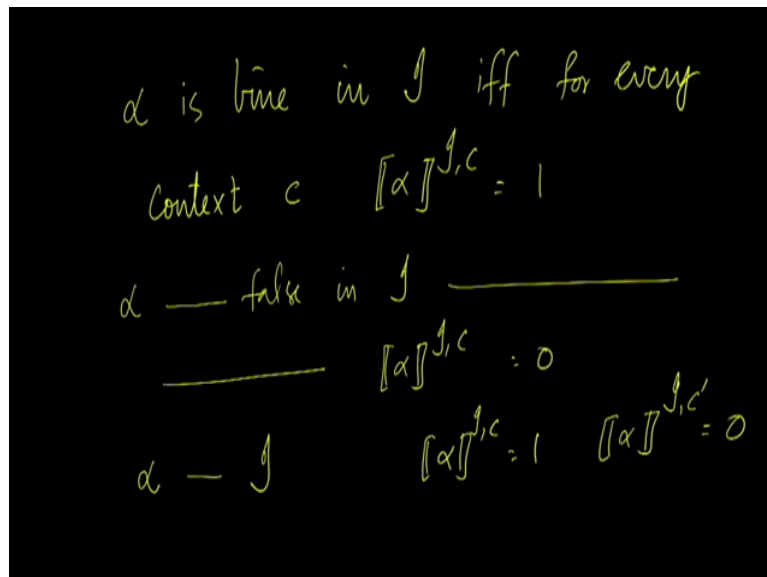 α is true in I iff for every
context c ⟦α⟧^I,c = 1
α — false in I ———
——— ⟦α⟧^I,c = 0
α — I ⟦α⟧^I,c = 1 ⟦α⟧^I,c' = 0